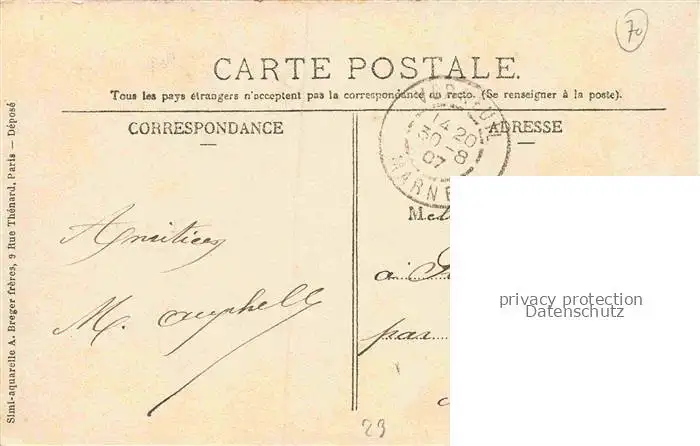 70
CARTE POSTALE.
Tous les pays étrangers n'acceptent pas la correspondance au recto. (Se renseigner à la poste).
CORRESPONDANCE
ADRESSE
14 20
30 - 8
07
MARNE
Amitiées
M.
M
à
par
privacy protection
Datenschutz
23
Simi-aquarelle A. Breger frères, 9 Rue Thénard, Paris — Déposé